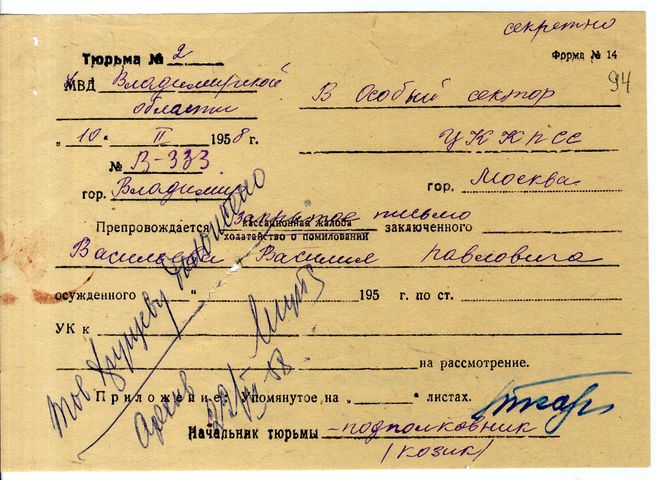 секретно
Тюрьма № 2
Форма № 14
94
МВД Владимирской
области
В Особый сектор
ЦК КПСС
„ 10 “ II 1958 г.
№ В-333
гор. Владимир
гор. Москва
Препровождается закрытое письмо заключенного
кассационная жалоба
ходатайство о помиловании
Васильева Василия Павловича
осужденного „ “ 195 г. по ст.
УК к
на рассмотрение.
Приложение: Упомянутое на „ “ листах.
Начальник тюрьмы – подполковник
(Козик)
Тов. Хрущеву доложено
Архив
58